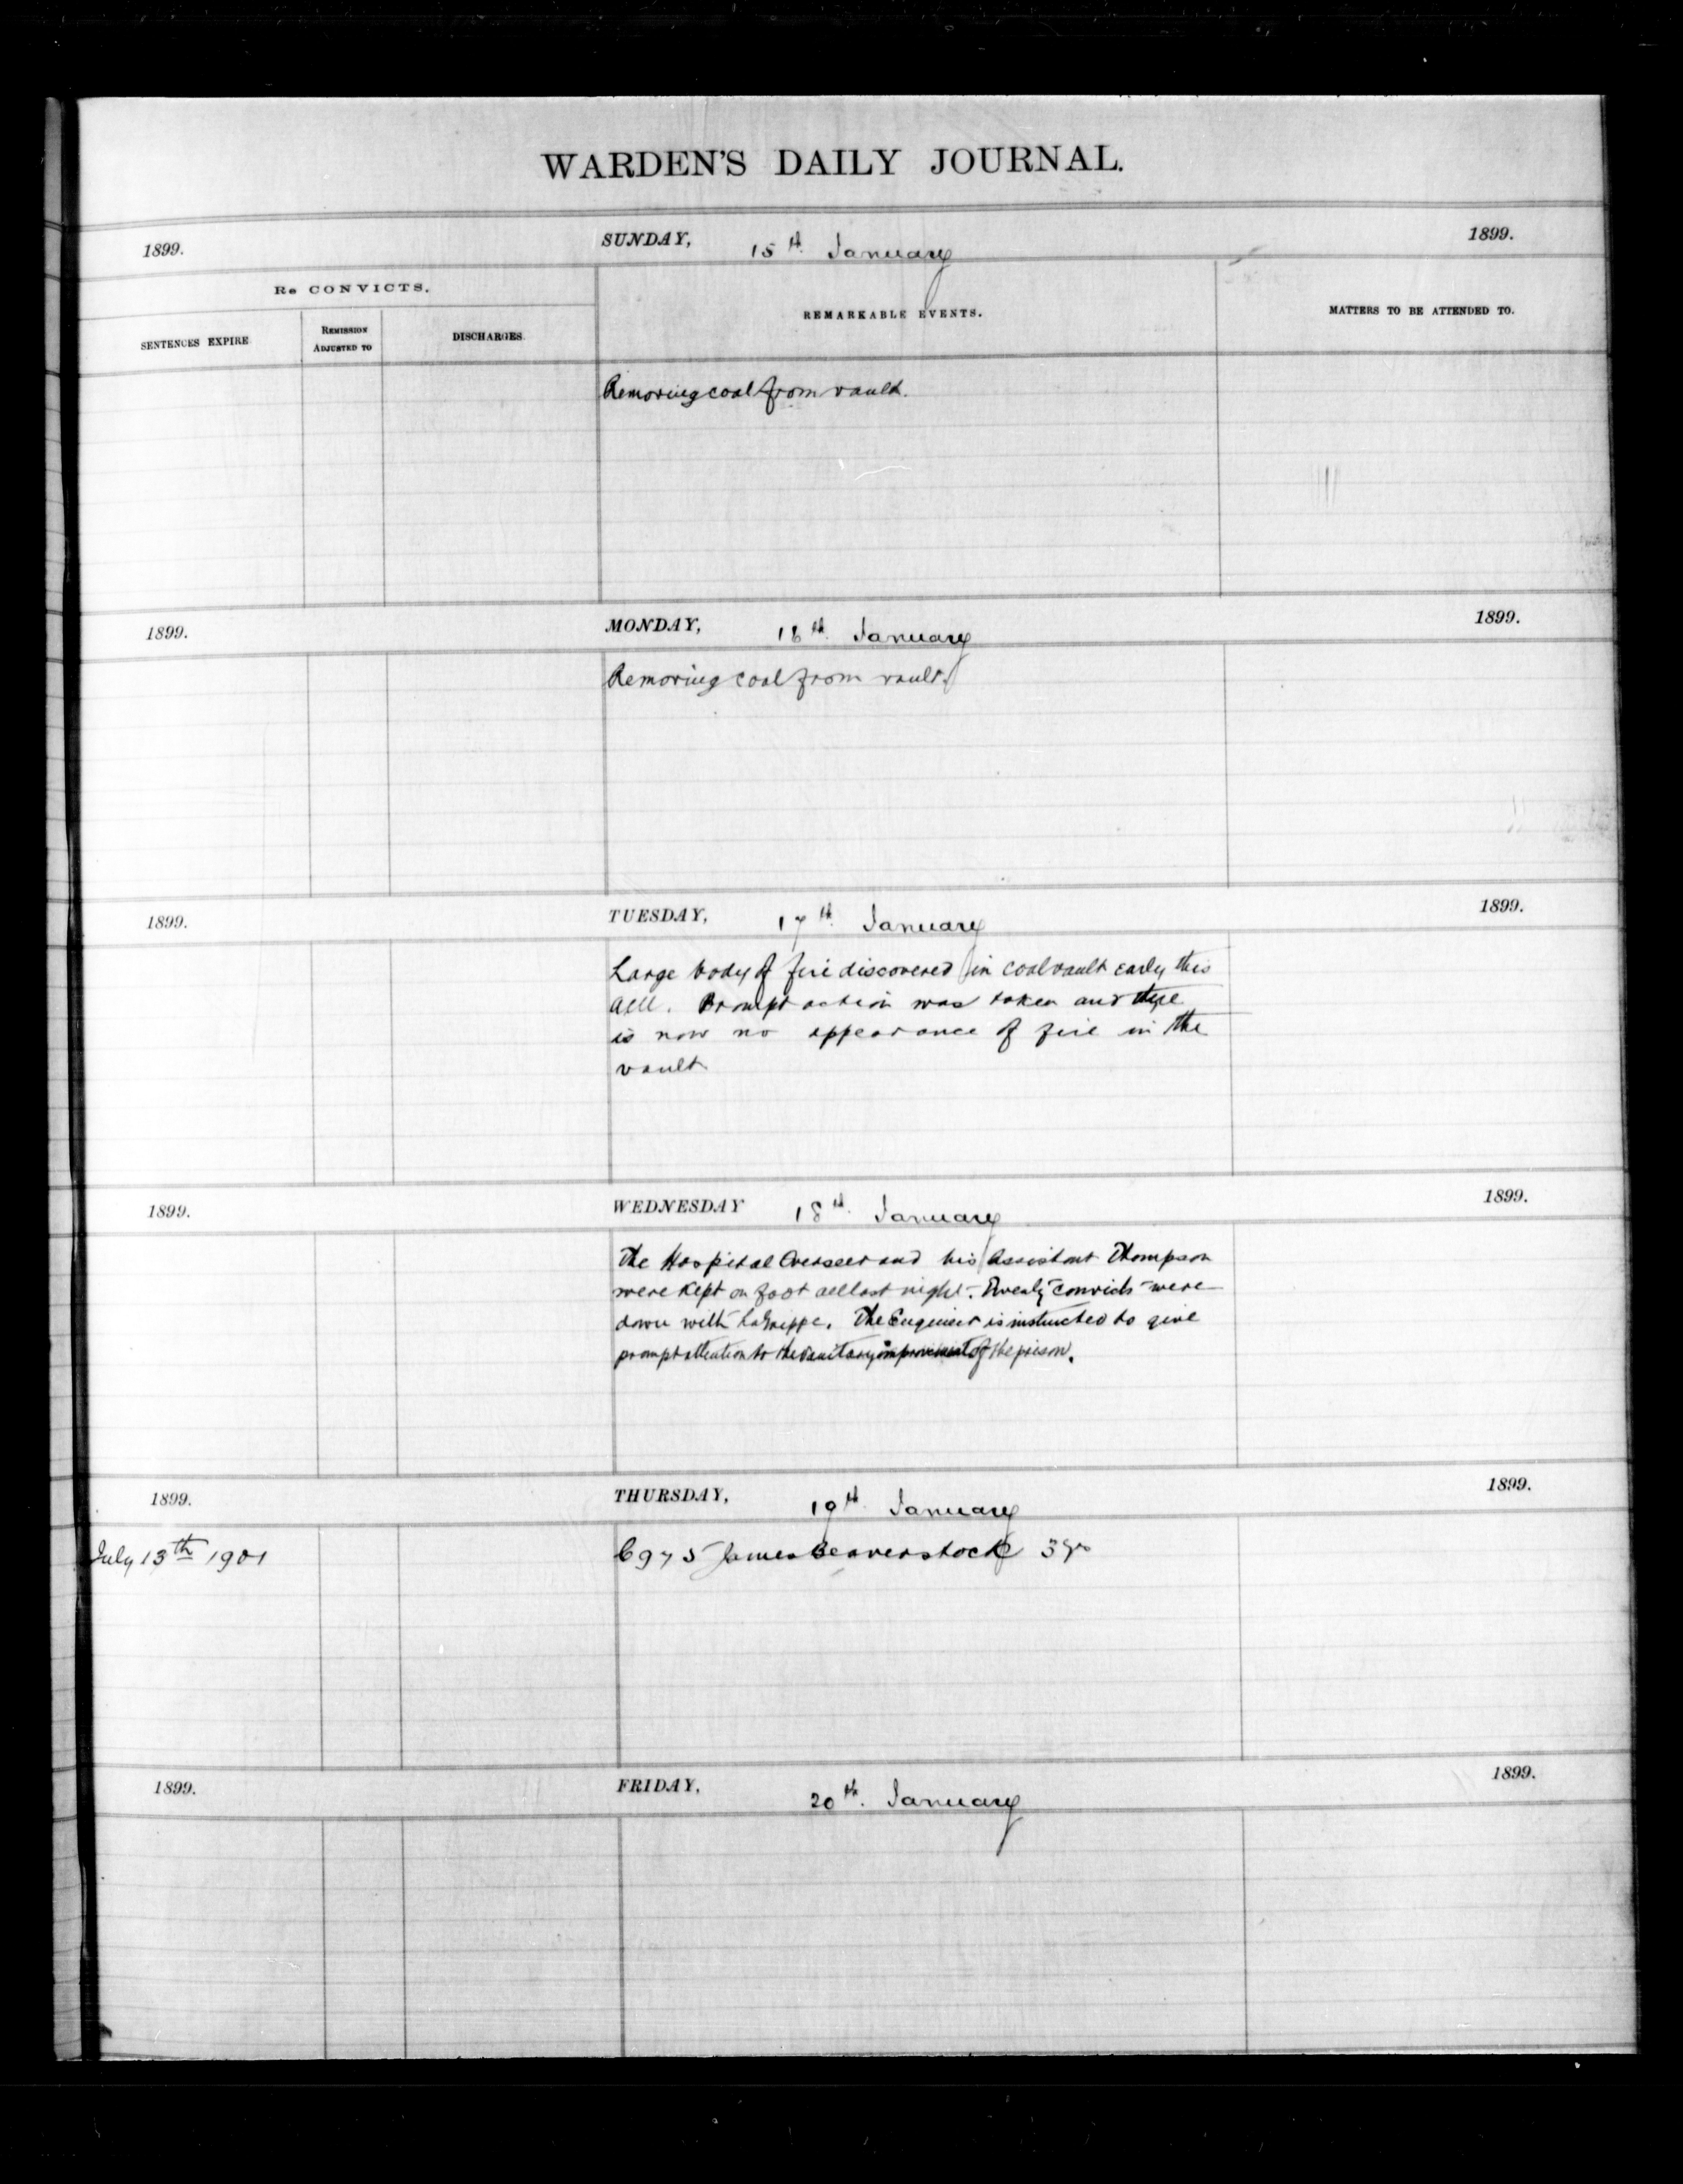 WARDEN'S DAILY JOURNAL.
1899. SUNDAY, 15th January 1899.
Re CONVICTS.
SENTENCES EXPIRE REMISSION ADJUSTED TO DISCHARGES. REMARKABLE EVENTS. MATTERS TO BE ATTENDED TO.
Removing coal from vault.
1899. MONDAY, 16th January 1899.
Removing coal from vault.
1899. TUESDAY, 17th January 1899.
Large body of fire discovered in coal vault early this
a.m. Prompt action was taken and there
is now no appearance of fire in the
vault
1899. WEDNESDAY 18th January 1899.
The Hospital Overseer and his Assistant Thompson
were kept on foot all last night. Twenty convicts were
down with LaGrippe. The Engineer is instructed to give
prompt attention to the sanitary improvement of the prison.
1899. THURSDAY, 19th January 1899.
July 13th 1901 C975 James Beaverstock 3 yrs
1899. FRIDAY, 20th January 1899.